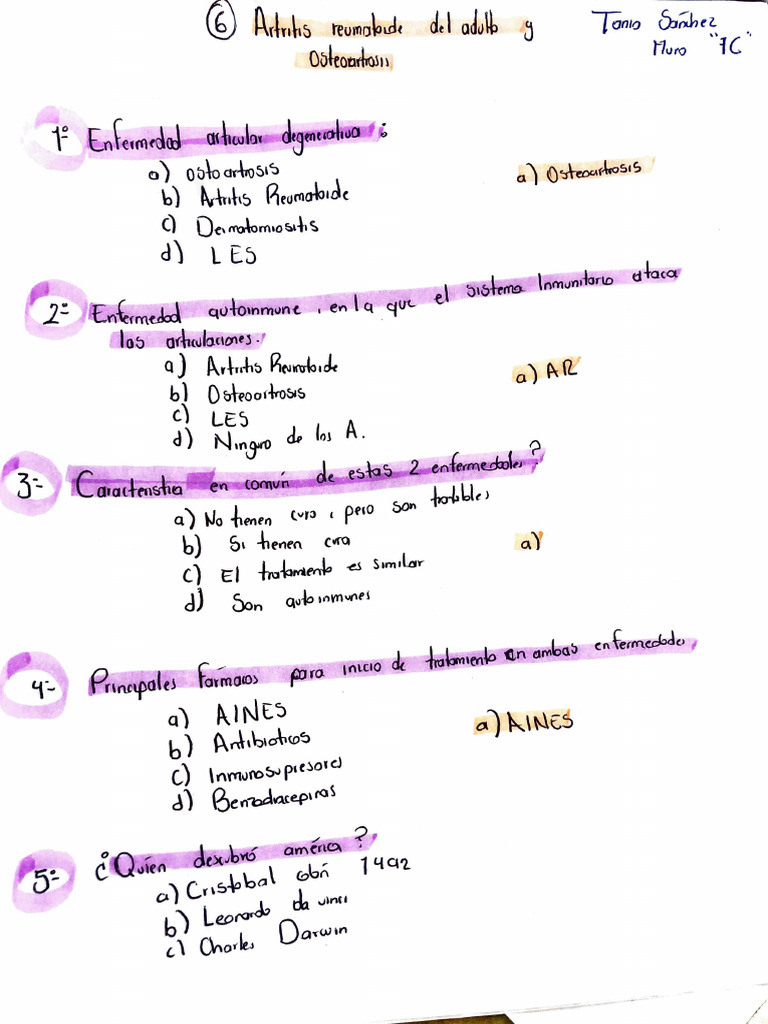 6 Artritis reumatoide del adulto y
Osteoartrosis
Tania Sánchez
Muro "7C"
1º Enfermedad articular degenerativa:
a) ostoartrosis
b) Artritis Reumatoide
c) Dermatomiositis
d) LES
a) Osteoartrosis
2º Enfermedad autoinmune, en la que el sistema Inmunitario ataca
las articulaciones.
a) Artritis Reumatoide
b) Osteoartrosis
c) LES
d) Ninguno de los A.
a) AR
3º Caracteristica en común de estas 2 enfermedades?
a) No tienen cura, pero son tratables
b) Si tienen cura
c) El tratamiento es similar
d) Son autoinmunes
a)
4º Principales Fármacos para inicio de tratamiento en ambas enfermedades
a) AINES
b) Antibioticos
c) Inmunosupresores
d) Benzodiacepinas
a) AINES
5º ¿Quíen descubró américa?
a) Cristobal colón 1492
b) Leonardo da vinci
c) Charles Darwin